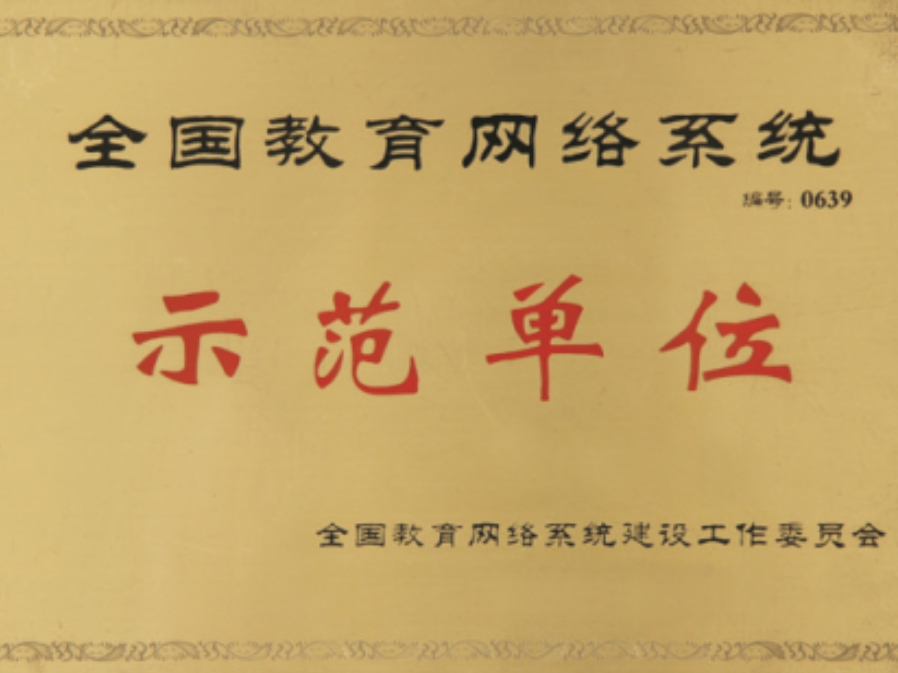 全国教育网络系统
编号：0639
示范单位
全国教育网络系统建设工作委员会